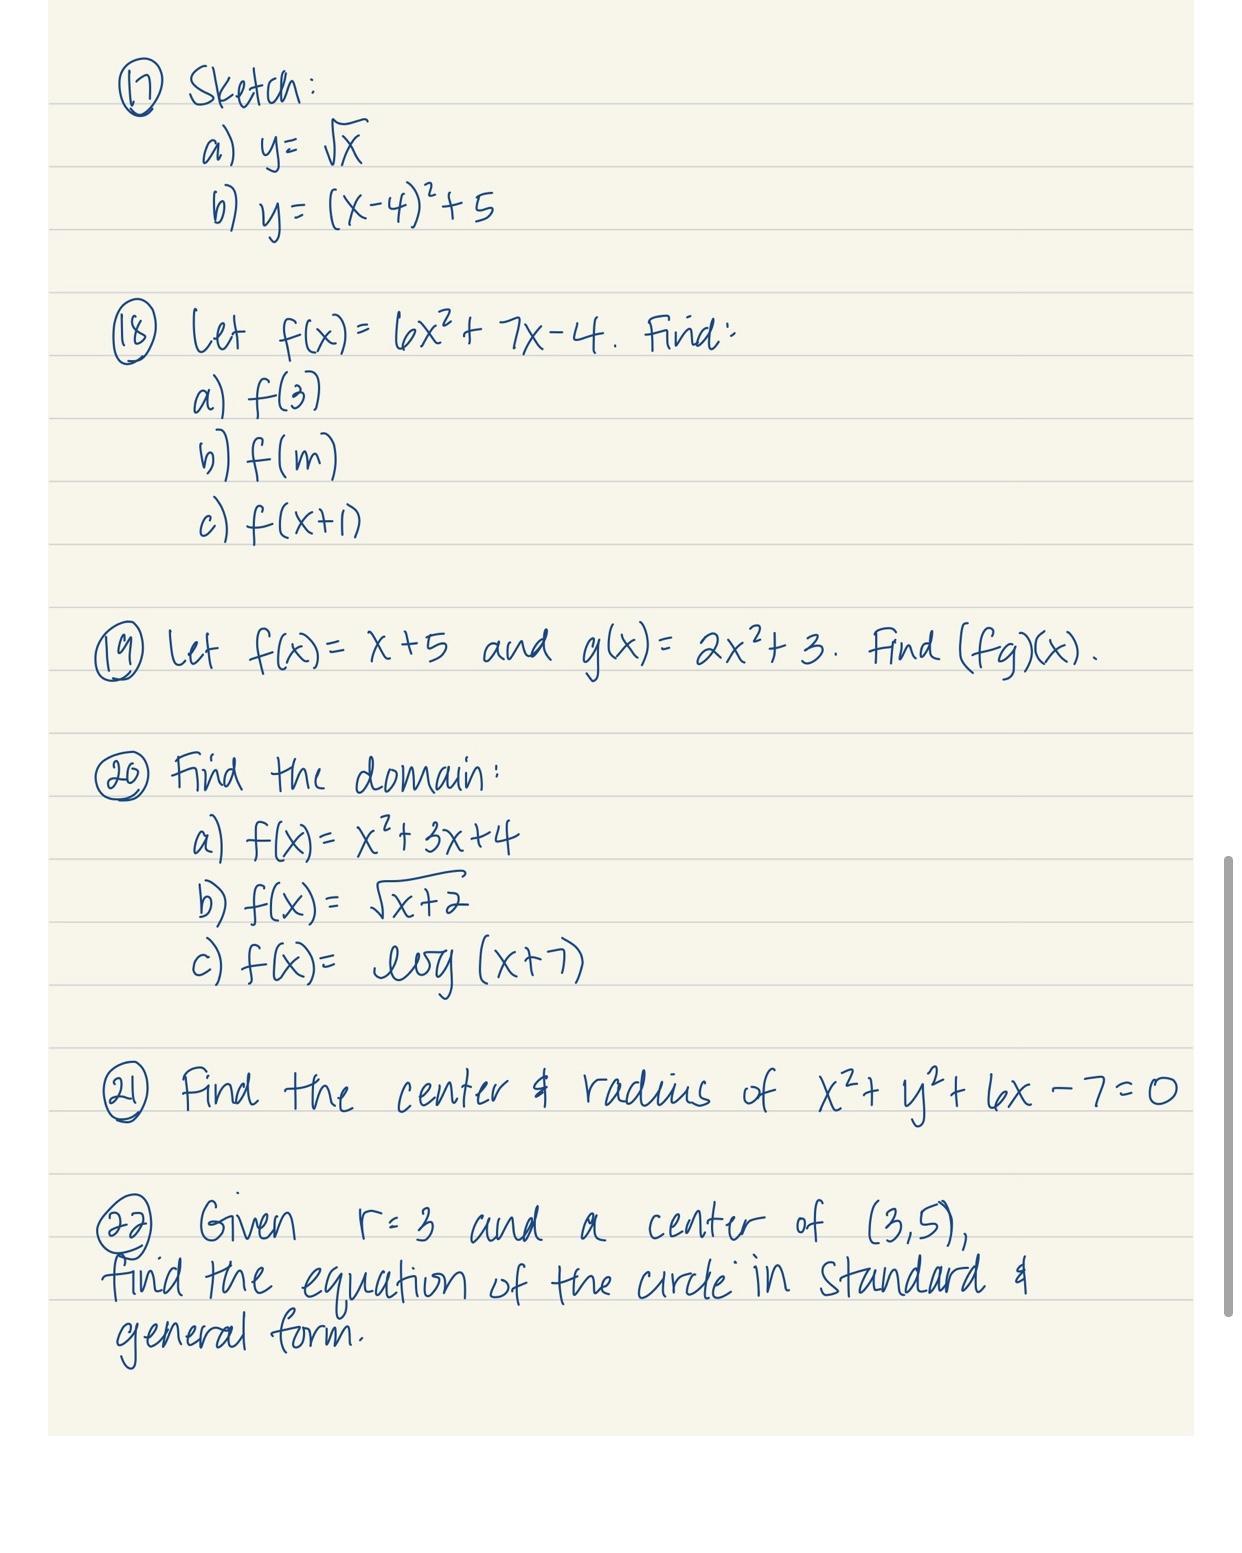 17 Sketch:
a) y = √x
b) y = (x-4)² + 5
18 Let f(x) = 6x² + 7x - 4. Find:
a) f(3)
b) f(m)
c) f(x+1)
19 Let f(x) = x+5 and g(x) = 2x² + 3. Find (fg)(x).
20 Find the domain:
a) f(x) = x² + 3x + 4
b) f(x) = √x+2
c) f(x) = log (x+7)
21 Find the center & radius of x² + y² + 6x - 7 = 0
22 Given r = 3 and a center of (3,5),
find the equation of the circle in standard &
general form.